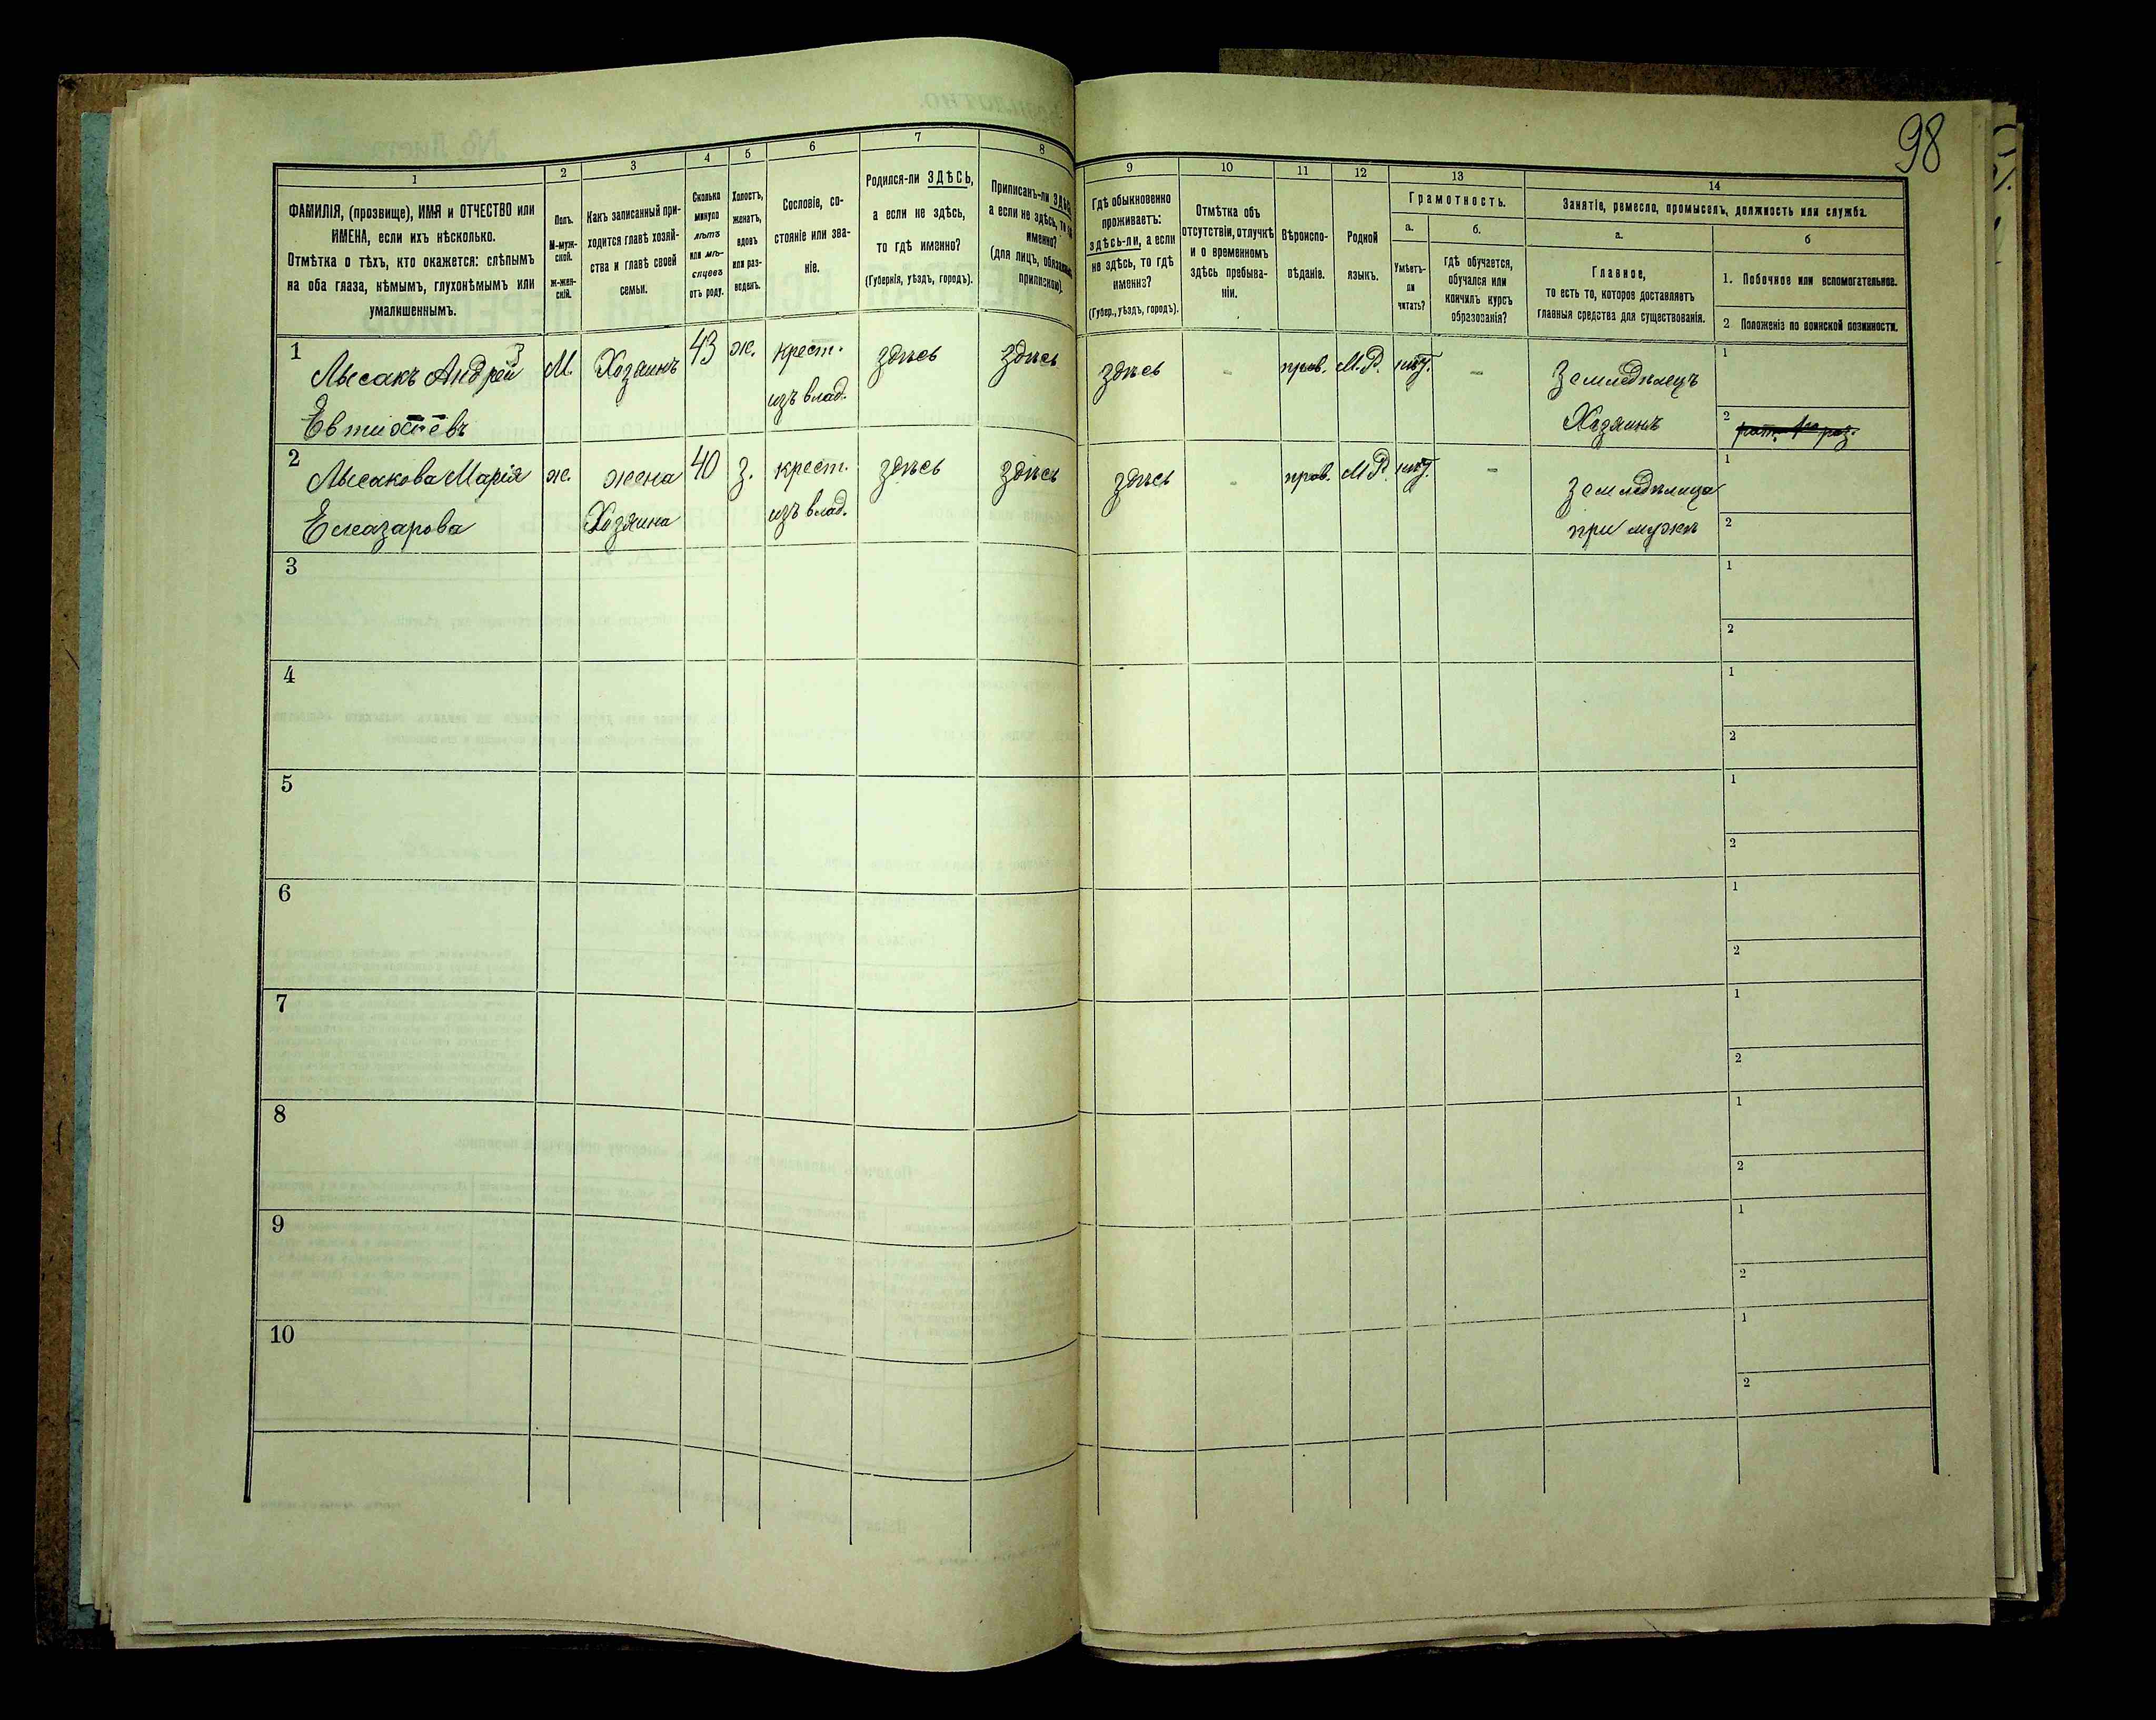 98
1
ФАМИЛІЯ, (прозвище), ИМЯ и ОТЧЕСТВО или
ИМЕНА, если ихъ нѣсколько.
Отмѣтка о тѣхъ, кто окажется: слѣпымъ
на оба глаза, нѣмымъ, глухонѣмымъ или
умалишеннымъ.
2
Полъ.
М-муж-
ской.
ж-жен-
скій.
3
Какъ записанный при-
ходится главѣ хозяй-
ства и главѣ своей
семьи.
4
Сколько
минуло
лѣтъ
или мѣ-
сяцевъ
отъ роду.
5
Холостъ,
женатъ,
вдовъ
или раз-
веденъ.
6
Сословіе, со-
стояніе или зва-
ніе.
7
Родился-ли ЗДѢСЬ,
а если не здѣсь,
то гдѣ именно?
(Губернія, уѣздъ, городъ).
8
Приписанъ-ли
а если не здѣсь,
именно?
(для лицъ,
припискою).
9
Гдѣ обыкновенно
проживаетъ:
здѣсь-ли, а если
не здѣсь, то гдѣ
именно?
(Губер., уѣздъ, городъ).
10
Отмѣтка объ
отсутствіи, отлучкѣ
и о временномъ
здѣсь пребыва-
ніи.
11
Вѣроиспо-
вѣданіе.
12
Родной
языкъ.
13
Грамотность.
а.
Умѣетъ-
ли
читать?
б.
гдѣ обучается,
обучался или
кончилъ курсъ
образованія?
14
Занятіе, ремесло, промыселъ, должность или служба.
а.
Главное,
то есть то, которое доставляетъ
главныя средства для существованія.
б
1. Побочное или вспомогательное.
2 Положеніе по воинской повинности.
1
3
Лысакъ Андрей
Евтихіевъ
М.
Хозяинъ
43
ж.
крест.
изъ влад.
здѣсь
здѣсь
здѣсь
-
прав.
М.Р.
нѣт.
-
Земледѣлецъ
Хозяинъ
1
2
2
Лысакова Марія
Елеазарова
ж.
жена
Хозяина
40
з.
крест.
изъ влад.
здѣсь
здѣсь
здѣсь
-
прав.
М.Р.
нѣт.
-
Земледѣлица
при мужѣ
1
2
3
1
2
4
1
2
5
1
2
6
1
2
7
1
2
8
1
2
9
1
2
10
1
2